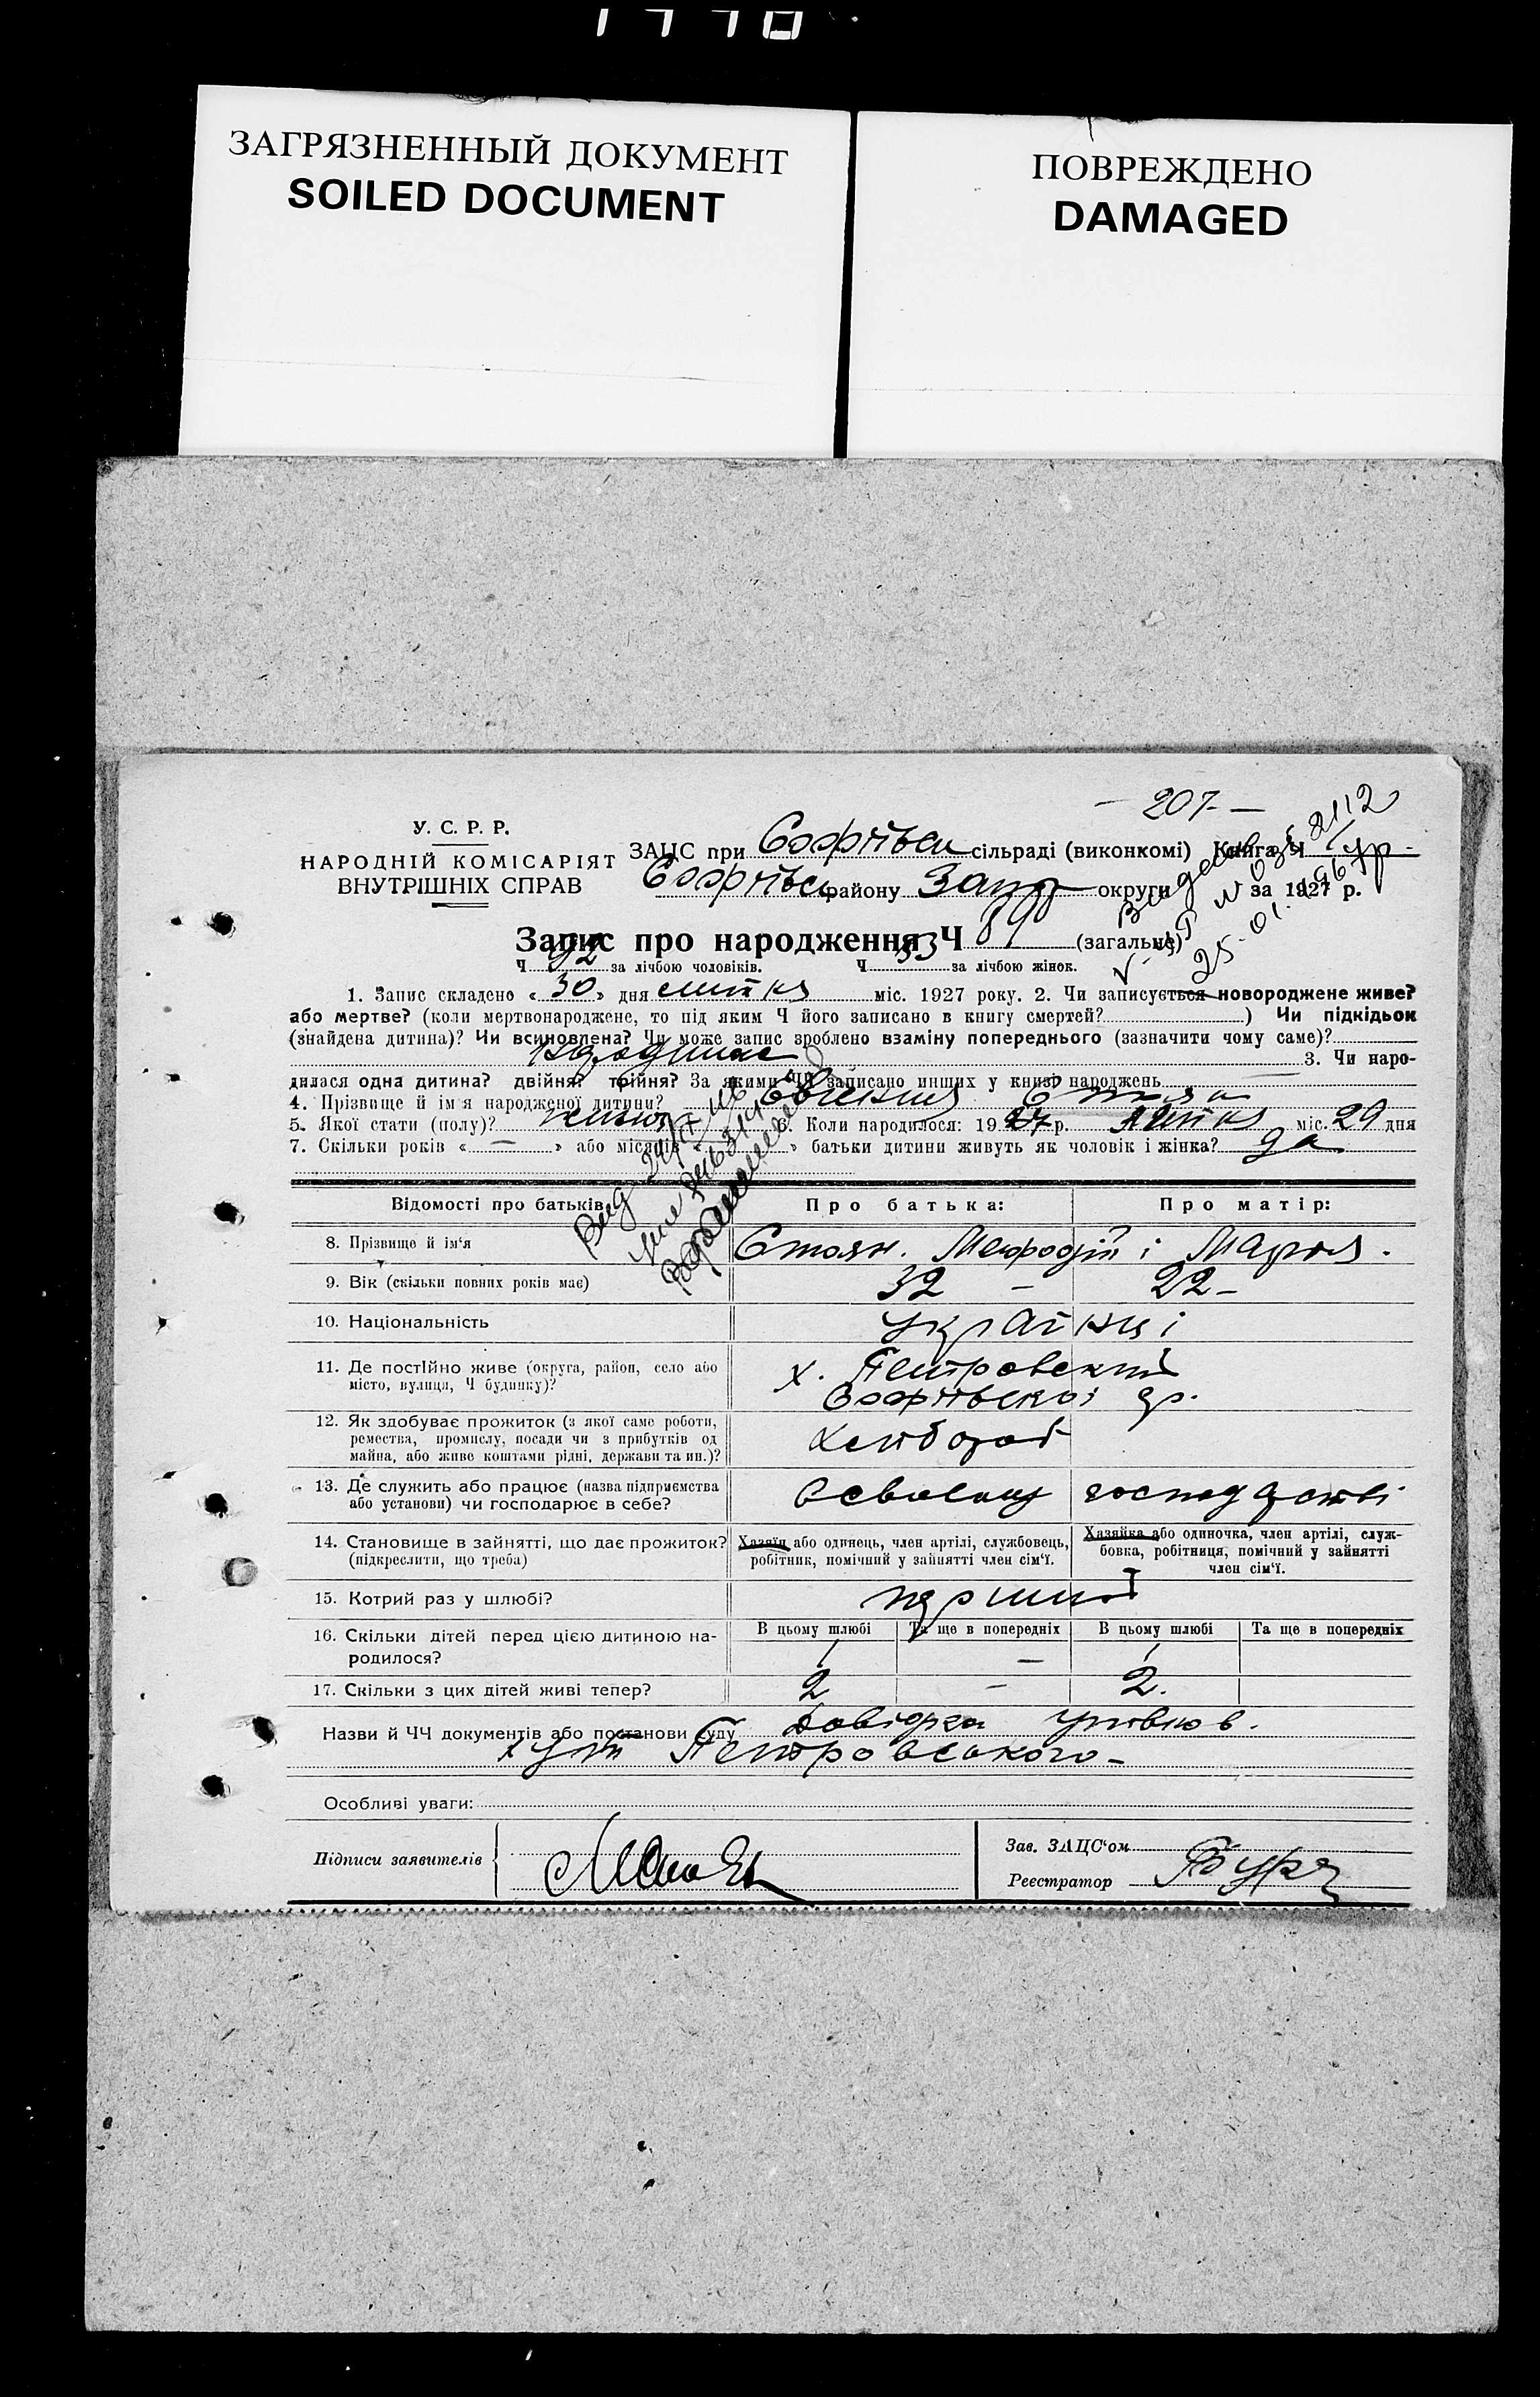 1770
ЗАГРЯЗНЕННЫЙ ДОКУМЕНТ
SOILED DOCUMENT
ПОВРЕЖДЕНО
DAMAGED
- 207 -
У. С. Р. Р.
НАРОДНІЙ КОМІСАРІЯТ
ВНУТРІШНІХ СПРАВ
ЗАЦС при Софіївськ сільраді (виконкомі) Книга Ч
району Запор округи за 1927 р.
25-01-
Запис про народження Ч (загальне)
Ч за лічбою чоловіків. Ч 53 за лічбою жінок.
1. Запис складено «30» дня липня міс. 1927 року. 2. Чи записується новороджене живе?
або мертве? (коли мертвонароджене, то під яким Ч його записано в книгу смертей? ) Чи підкідьок
(знайдена дитина)? Чи всиновлена? Чи може запис зроблено взаміну попереднього (зазначити чому саме)?
3. Чи наро-
дилася одна дитина? двійня? трійня? За якими ЧЧ записано инших у книзі народжень
4. Прізвище й ім'я народженої дитини? Стоян
5. Якої стати (полу)? 6. Коли народилося: 1927 р. липня міс. 29 дня
7. Скільки років « — » або місяців « » батьки дитини живуть як чоловік і жінка? да
Відомості про батьків Про батька: Про матір:
8. Прізвище й ім'я Стоян. Мефодій і Марія.
9. Вік (скільки повних років має) 32 - 22 -
10. Національність українці
11. Де постійно живе (округа, район, село або
місто, вулиця, Ч будинку)? х. Петровський
Софіївської
12. Як здобуває прожиток (з якої саме роботи,
ремества, промислу, посади чи з прибутків од
майна, або живе коштами рідні, держави та ин.)? хлібороб
13. Де служить або працює (назва підприємства
або установи) чи господарює в себе? господарстві
14. Становище в зайнятті, що дає прожиток?
(підкреслити, що треба)
Хазяїн або одинець, член артілі, службовець,
робітник, помічний у зайнятті член сім'ї.
Хазяйка або одиночка, член артілі, служ-
бовка, робітниця, помічний у зайнятті
член сім'ї.
15. Котрий раз у шлюбі? перший
16. Скільки дітей перед цією дитиною на-
родилося?
В цьому шлюбі Та ще в попередніх В цьому шлюбі Та ще в попередніх
17. Скільки з цих дітей живі тепер? 2 - 2.
Назви й ЧЧ документів або постанови суду Довідка
хут Петровського -
Особливі уваги:
Підписи заявителів
Зав. ЗАЦС'ом
Реєстратор